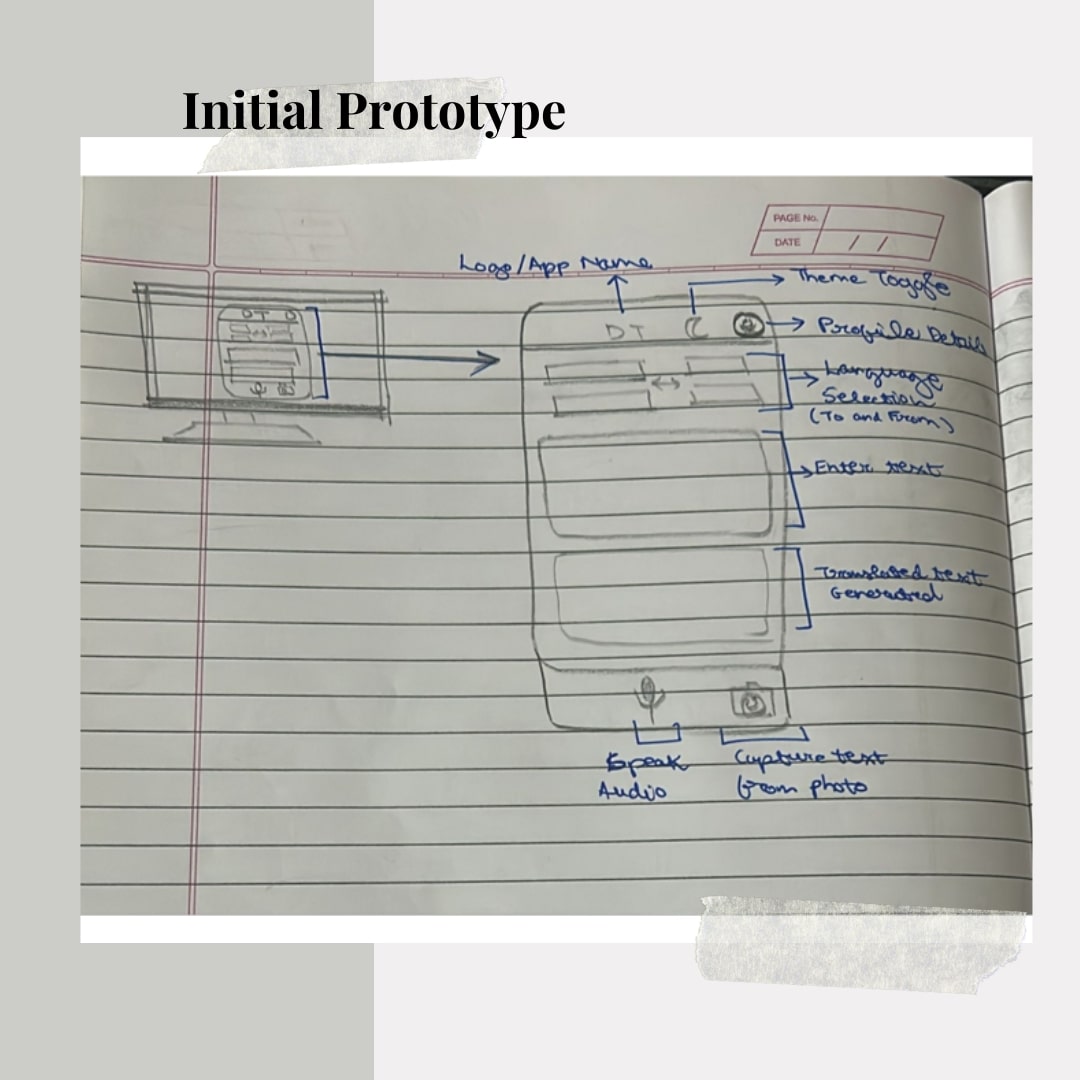 Initial Prototype
PAGE No.
DATE / /
Logo/App Name
Theme Toggle
DT
DT
Profile Details
Language
Selection
(To and From)
Enter text
Translated text
Generated
Speak
Audio
Capture text
from photo